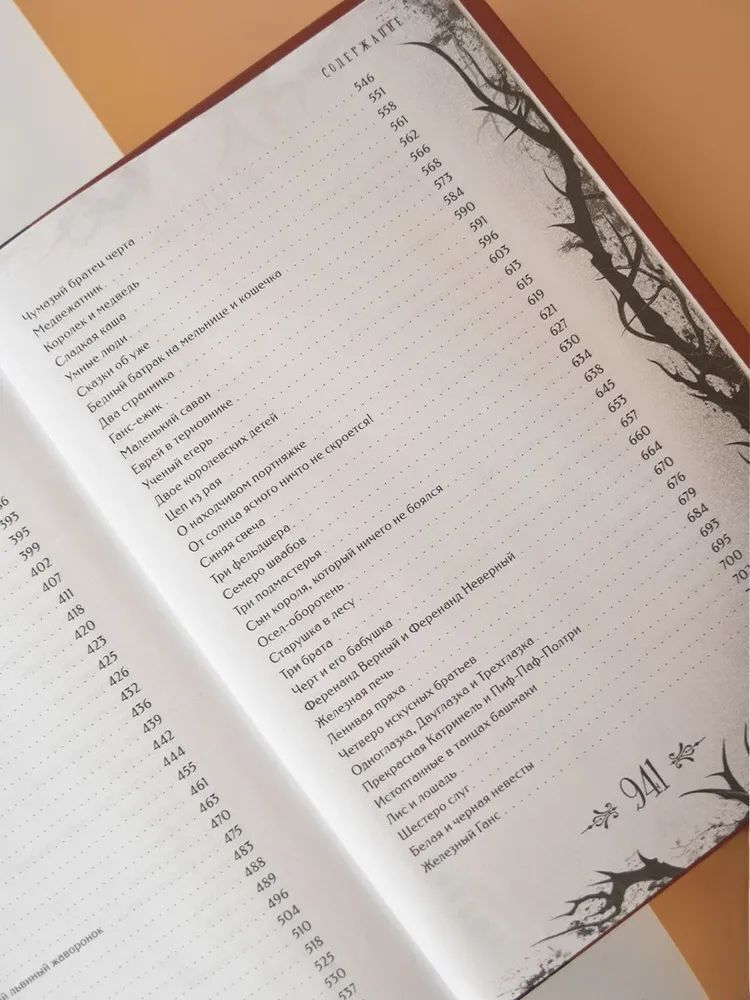 393
395
399
402
407
411
418
420
423
425
426
432
436
439
442
444
455
461
463
470
475
483
488
489
496
504
510
518
525
530
львиный жаворонок
537
СОДЕРЖАНИЕ
Чумазый братец черта 546
Медвежатник 551
Королек и медведь 558
Сладкая каша 561
Умные люди 562
Сказки об уже 566
Бедный батрак на мельнице и кошечка 568
Два странника 573
Ганс-ежик 584
Маленький саван 590
Еврей в терновнике 591
Ученый егерь 596
Двое королевских детей 603
Цеп из рая 613
О находчивом портняжке 615
От солнца ясного ничто не скроется! 619
Синяя свеча 621
Три фельдшера 627
Семеро швабов 630
Три подмастерья 634
Сын короля, который ничего не боялся 638
Осел-оборотень 645
Старушка в лесу 653
Три брата 657
Черт и его бабушка 660
Ференанд Верный и Ференанд Неверный 664
Железная печь 670
Ленивая пряха 676
Четверо искусных братьев 679
Одноглазка, Двуглазка и Трехглазка 684
Прекрасная Катринель и Пиф-Паф-Полтри 693
Истоптанные в танцах башмаки 695
Лис и лошадь 700
Шестеро слуг
Белая и черная невесты
Железный Ганс
941